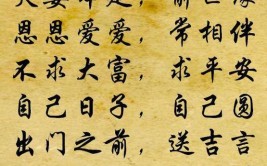 恩恩爱爱，常相伴
不求大富，求平安
自己日子，自己圆
出门之前，送吉言